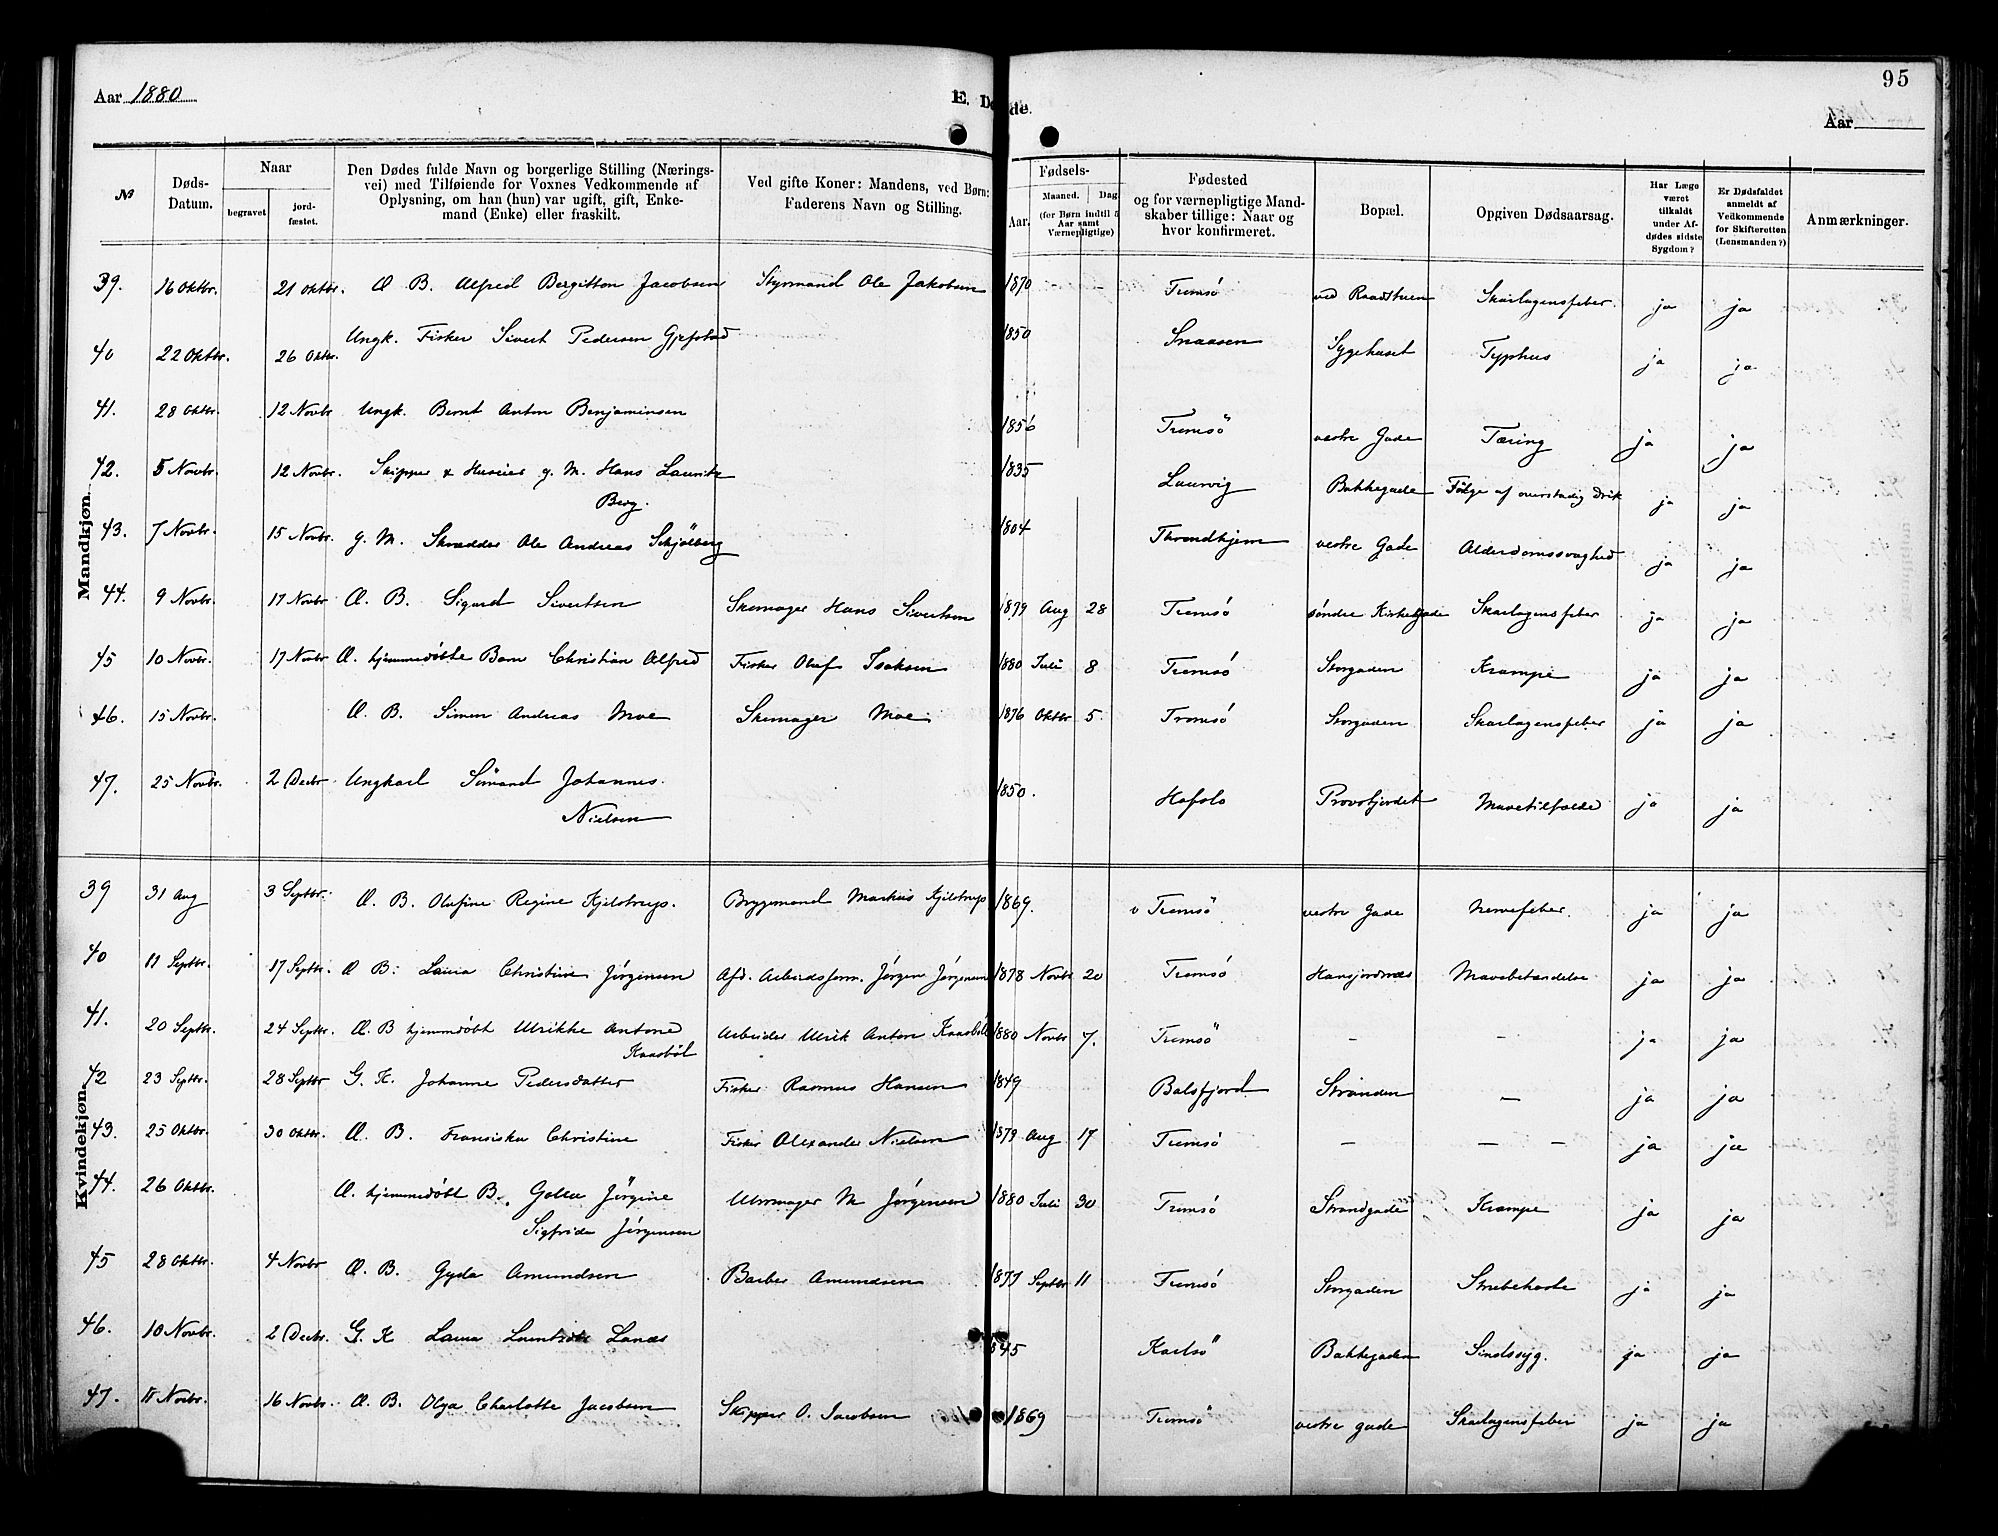 Aar 1880
E. Døde.
95
Aar
№
Døds-Datum.
Naar
begravet
jord-fæstet.
Den Dødes fulde Navn og borgerlige Stilling (Nærings-
vei) med Tilføiende for Voxnes Vedkommende af
Oplysning, om han (hun) var ugift, gift, Enke-
mand (Enke) eller fraskilt.
Ved gifte Koner: Mandens, ved Børn:
Faderens Navn og Stilling.
Fødsels-
Aar.
Maaned. Dag.
(for Børn indtil 5
Aar samt
Værnepligtige)
Fødested
og for værnepligtige Mand-
skaber tillige: Naar og
hvor konfirmeret.
Bopæl.
Opgiven Dødsaarsag.
Har Læge
været
tilkaldt
under Af-
dødes sidste
Sygdom?
Er Dødsfaldet
anmeldt af
Vedkommende
for Skifteretten
(Lensmanden?)
Anmærkninger.
Mandkjøn.
39. 16 Oktbr. 21 Oktbr. Æ. B. Alfred Bergitton Jacobsen Styrmand Ole Jakobsen 1870 Tromsö ved Raadstuen Skarlagensfeber. ja ja
40 22 Oktbr. 26 Oktbr. Ungk. Fisker Sivert Pedersen Gjefstad 1850 Snaasen Sygehuset Typhus ja ja
41. 28 Oktbr. 12 Novbr Ungk. Bernt Anton Benjaminsen 1856 Tromsö vestre Gade Tæring ja ja
42. 5 Novbr. 12 Novbr. Skipper & Huseier g. M. Hans Lauritz
Berg. 1835 Laurvig Bakkegade Følge af overstadig Drik ja ja
43. 7 Novbr. 15 Novbr. g. M. Skrædder Ole Andreas Schjölberg 1804 Throndhjem vestre Gade Alderdomssvaghed ja ja
44. 9 Novbr. 17 Novbr Æ. B. Sigurd Sivertsen Skomager Hans Sivertsen 1879 Aug 28 Tromsö søndre Kirkegade Skarlagensfeber ja ja
45 10 Novbr. 17 Novbr Æ. hjemmedöbte Barn Christian Alfred Fisker Oluf Isaksen 1880 Juli 8 Tromsö Storgaden Krampe ja ja
46. 15 Novbr. Æ. B. Simon Andreas Moe Skomager Moe 1876 Oktbr 5. Tromsö Storgaden Skarlagensfeber ja ja
47. 25 Novbr. 2 Decbr Ungkarl Simand Johannes
Nielsen 1850. Hafslo Provofjordet Mavetilfælde ja ja
Kvindekjøn.
39 31 Aug 3 Septbr. Æ. B. Olufine Regine Kjelstrup. Bryggemand Markus Kjelstrup 1869. v Tromsö vestre Gade Nervefeber. ja ja
40 11 Septbr. 17 Septbr. Æ B. Laura Christine Jörgensen Afd. Arbeidsform. Jörgen Jörgensen 1878 Novbr 20 Tromsö Hansjordnæs Mavebetændelse ja ja
41. 20 Septbr. 24 Septbr. Æ. B hjemmdöbt Ulrikke Antone
Kraaböl Arbeider Ulrik Anton Kraaböl 1880 Novbr 7. Tromsö — — ja ja
42 23 Septbr. 28 Septbr G. K. Johanne Pedersdatter Fisker Rasmus Hansen 1849 Balsfjord Stranden — ja ja
43. 25 Oktbr. 30 Oktbr. Æ. B. Fransiska Christine Fisker Alexander Nielsen 1879 Aug 17 Tromsö — — — ja ja
44. 26 Oktbr. Æ. hjemmedöbt B. Golla Jörgine
Sigfrida Jörgensen Uhrmager M Jörgensen 1880 Juli 30 Tromsö Strandgade Krampe ja ja
45 28 Oktbr. 4 Novbr Æ. B. Gyda Amundsen Barber Amundsen 1877 Septbr 11 Tromsö Storgaden Strubehoste ja ja
46. 10 Novbr. 2 Decbr. G. K Laura Lanæs 845 Karlsö Bakkegaden Sindssyg. ja ja
47. 11 Novbr. 16 Novbr. Æ. B. Olga Charlotte Jacobsen Skipper O. Jacobsen 1869 Tromsö vestre gade Skarlagensfeber ja ja